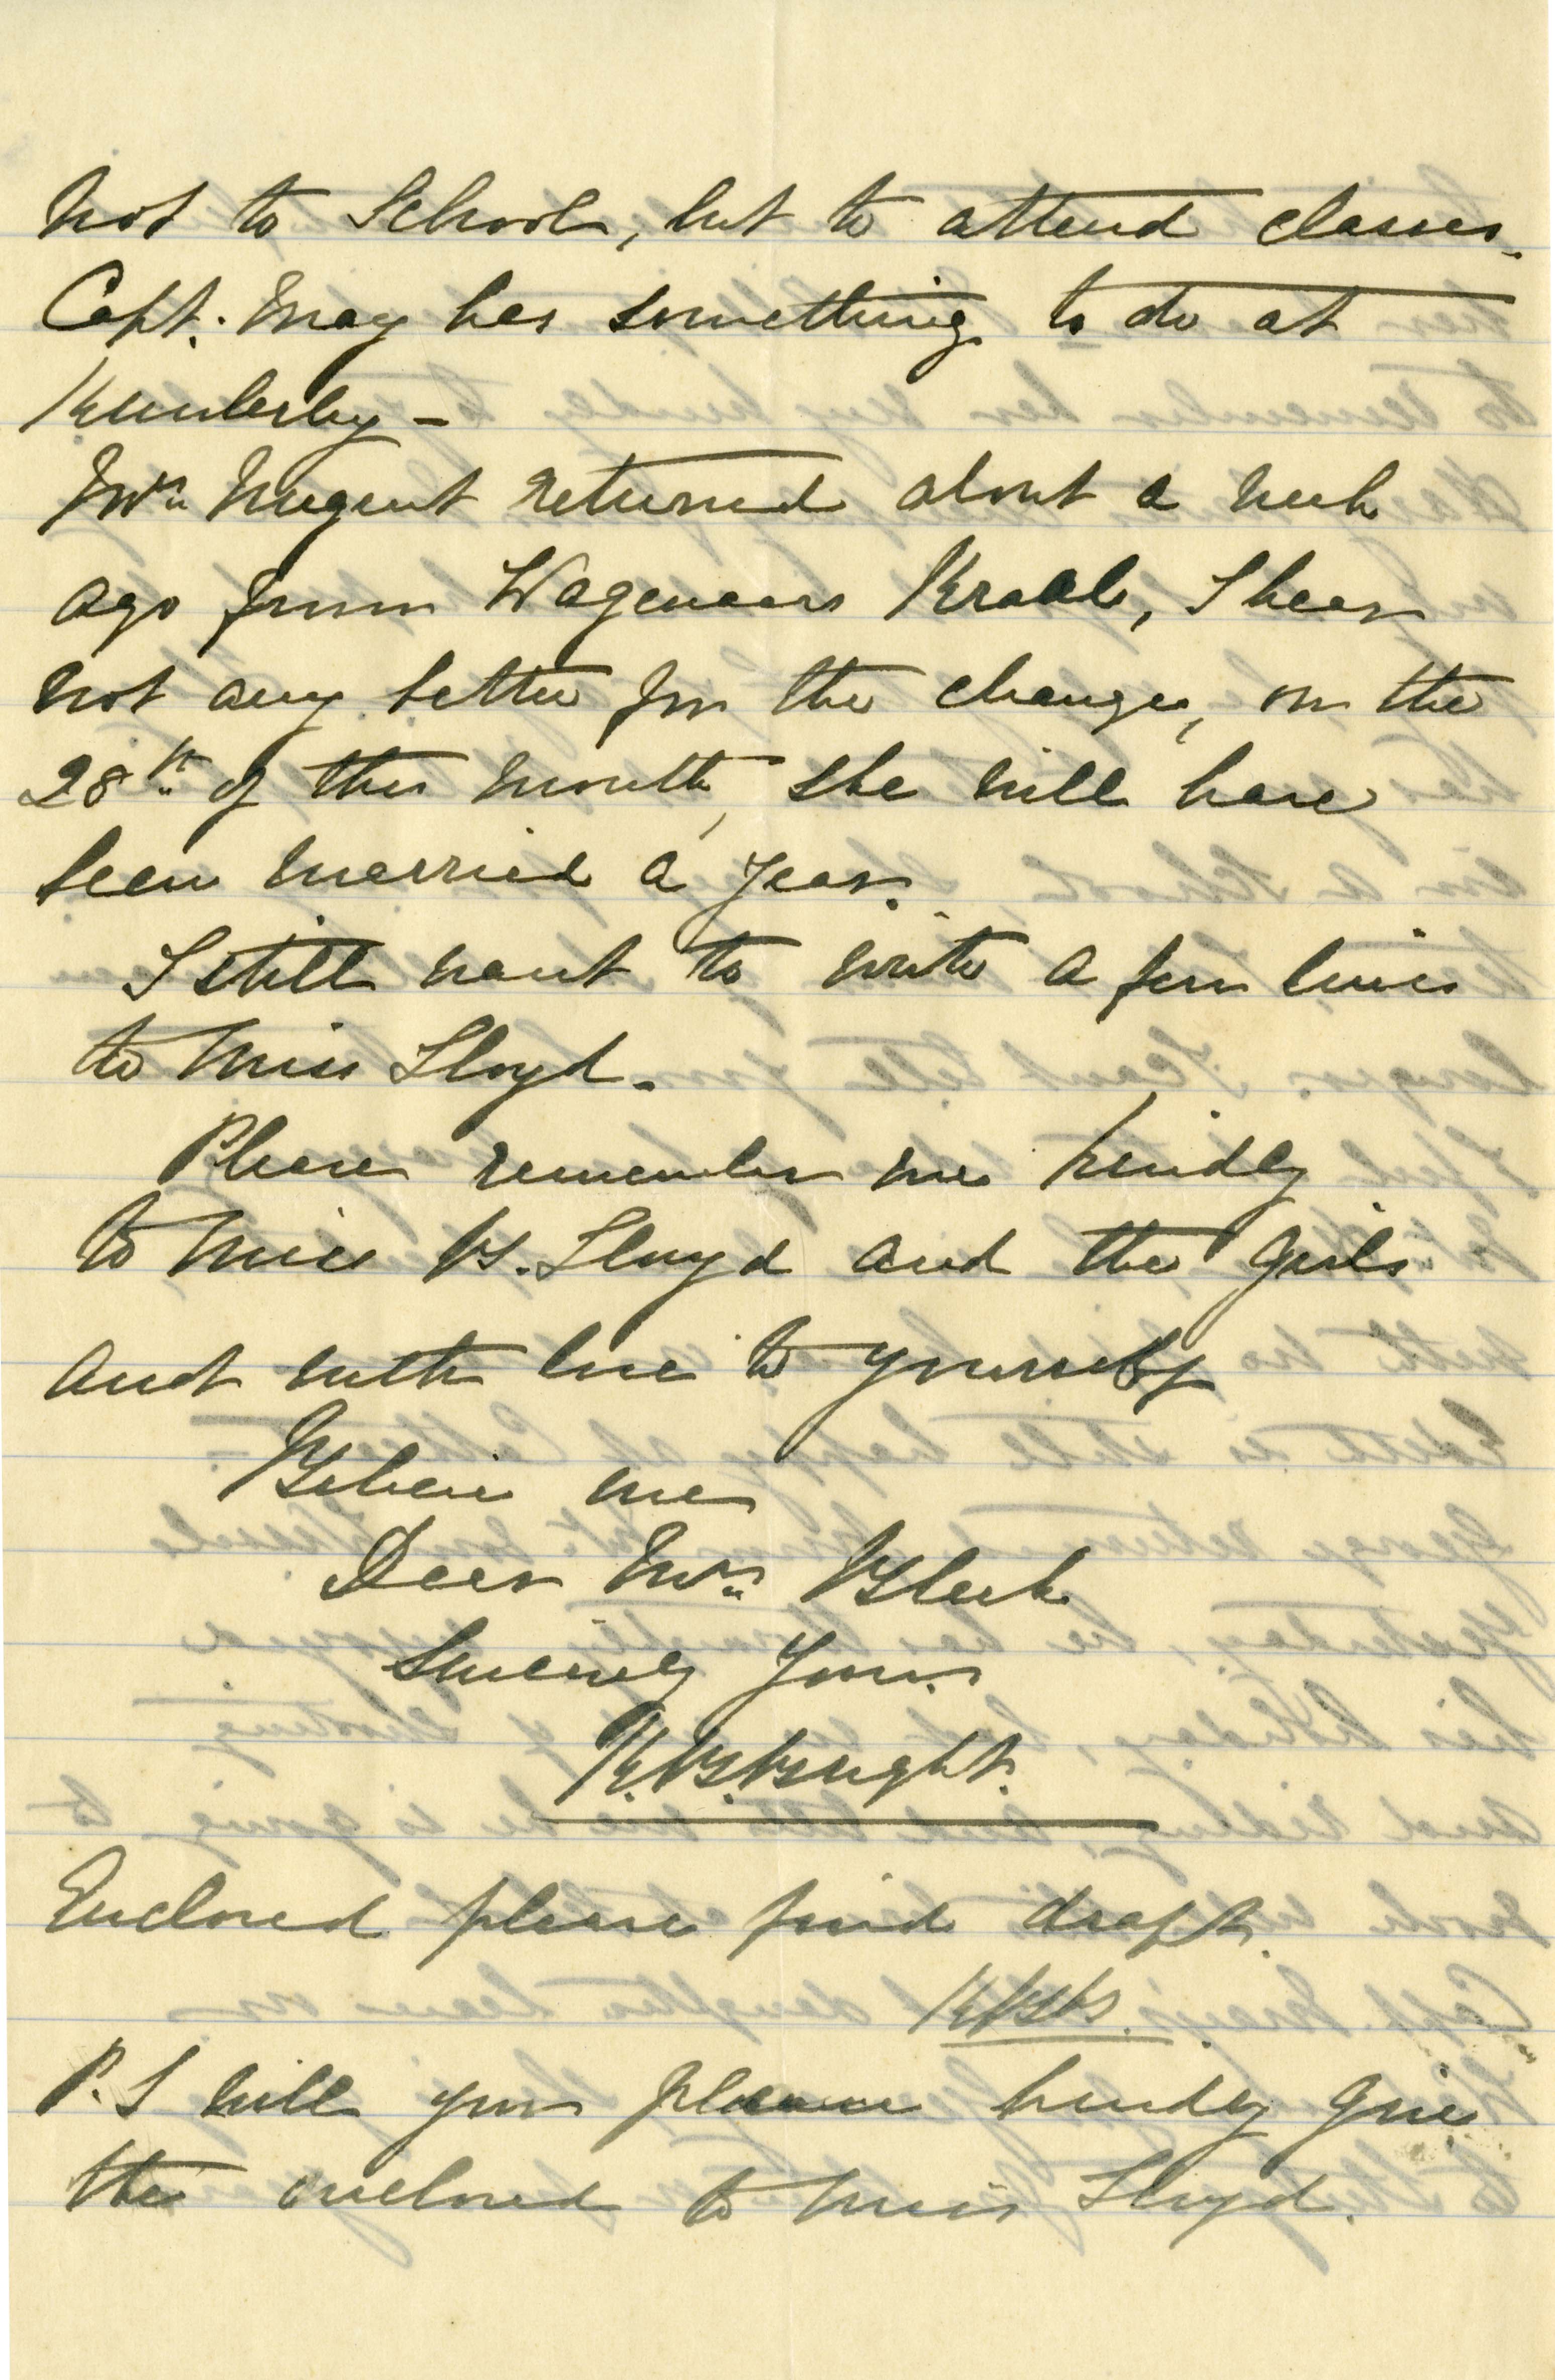 not to School, but to attend classes.
Capt. May has something to do at
Kimberley –
Mrs. Nugent returned about a week
ago from Wagenaars Kraal, I hear
not any better for the change, on the
28th of this month, she will have
been married a year.
I still want to write a few lines
to Miss Lloyd.
Please remember me kindly
to Miss B. Lloyd and the girls
and with love to yourself
Believe me
Dear Mrs. Bleek
Sincerely Yours
K. B. Bright.
Enclosed please find draft.
KBB.
P.S Will you please kindly give
the enclosed to Miss Lloyd.